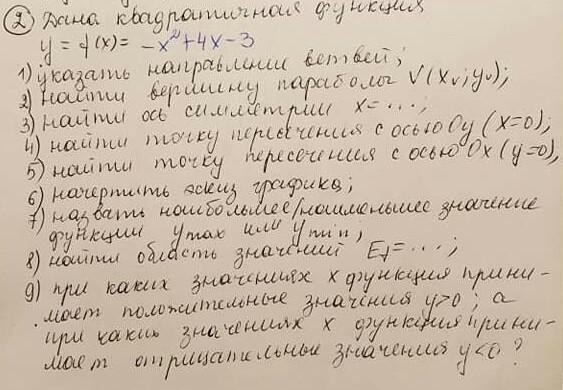 ② Дана квадратичная функция
y = f(x) = -x²+4x-3
1) указать направление ветвей;
2) найти вершину параболы V(xᵥ; yᵥ);
3) найти ось симметрии x=...;
4) найти точку пересечения с осью Oy (x=0);
5) найти точку пересечения с осью Ox (y=0),
6) начертить эскиз графика;
7) назвать наибольшее/наименьшее значение
функции ymax или ymin;
8) найти область значений Ef=...;
9) при каких значениях x функция прини-
мает положительные значения y>0; а
при каких значениях x функция прини-
мает отрицательные значения y<0?